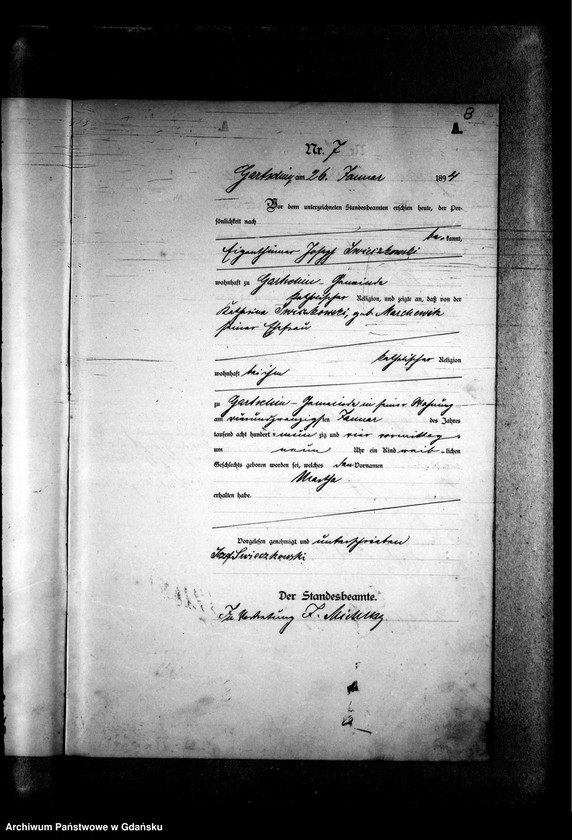 8
A.
Nr. 7
Gartschin, am 26. Januar 1894
Vor dem unterzeichneten Standesbeamten erschien heute, der Per-
sönlichkeit nach
be- kannt,
Eigenthümer Joseph Swieczkowski
wohnhaft zu Gartschin - Gemeinde
katholischer Religion, und zeigte an, daß von der
Katharina Swieczkowski, geb. Marchewicz
seiner Ehefrau
katholischer Religion
wohnhaft bei ihm
zu Gartschin - Gemeinde in seiner Wohnung
am vierundzwanzigsten Januar des Jahres
tausend acht hundert neunzig und vier vormittags
um neun Uhr ein Kind weib-lichen
Geschlechts geboren worden sei, welches den Vornamen
Martha
erhalten habe.
Vorgelesen, genehmigt und unterschrieben
Józef Swieczkowski
Der Standesbeamte.
In Vertretung
Archiwum Państwowe w Gdańsku